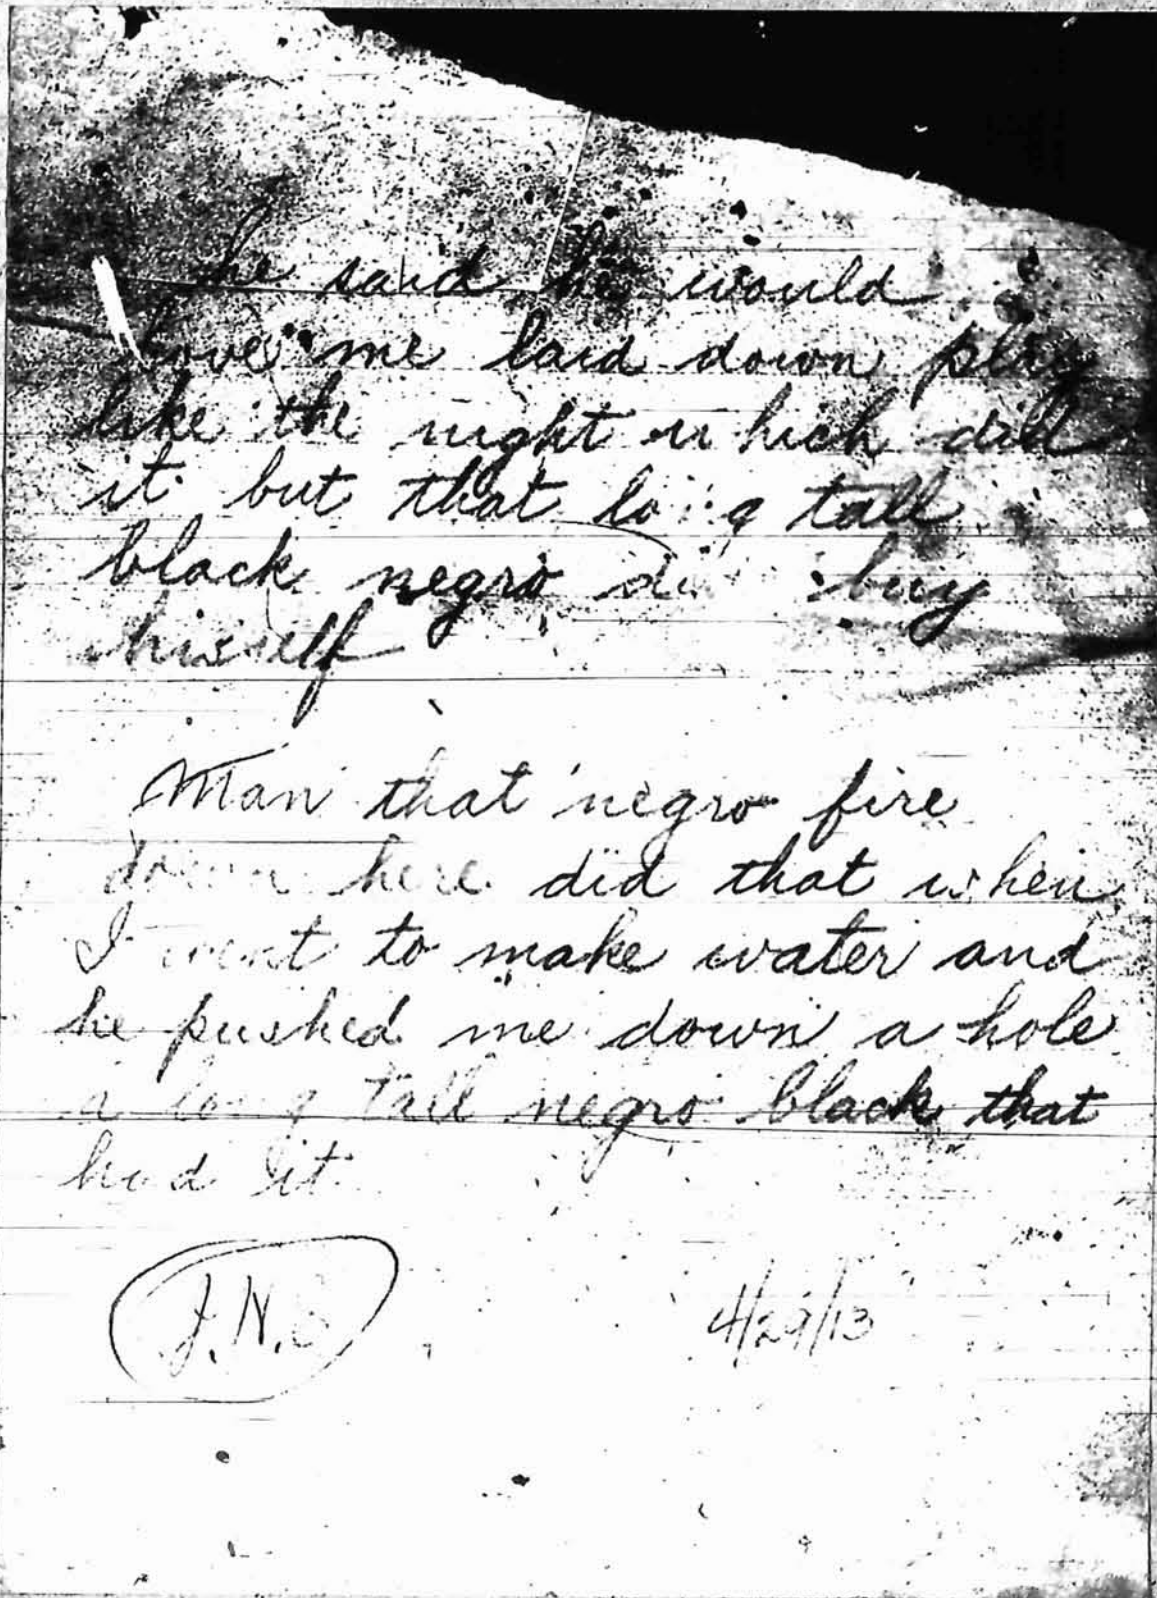 he said he would
love me laid down play
like the night which did
it but that long tall
black negro did buy
hisself
Man that negro fire
down here did that when
I went to make water and
he pushed me down a hole
a long tall negro black that
had it
4/29/13